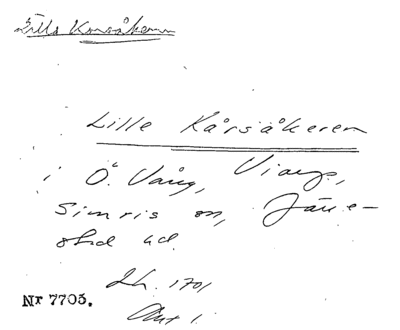 Lilla Korsåkern
Lille Kårsåkeren
i Ö. Vång, Viarp,
Simris sn, Järre-
stad hd.
Lh. 1701
Akt 1.
Nr 7703.